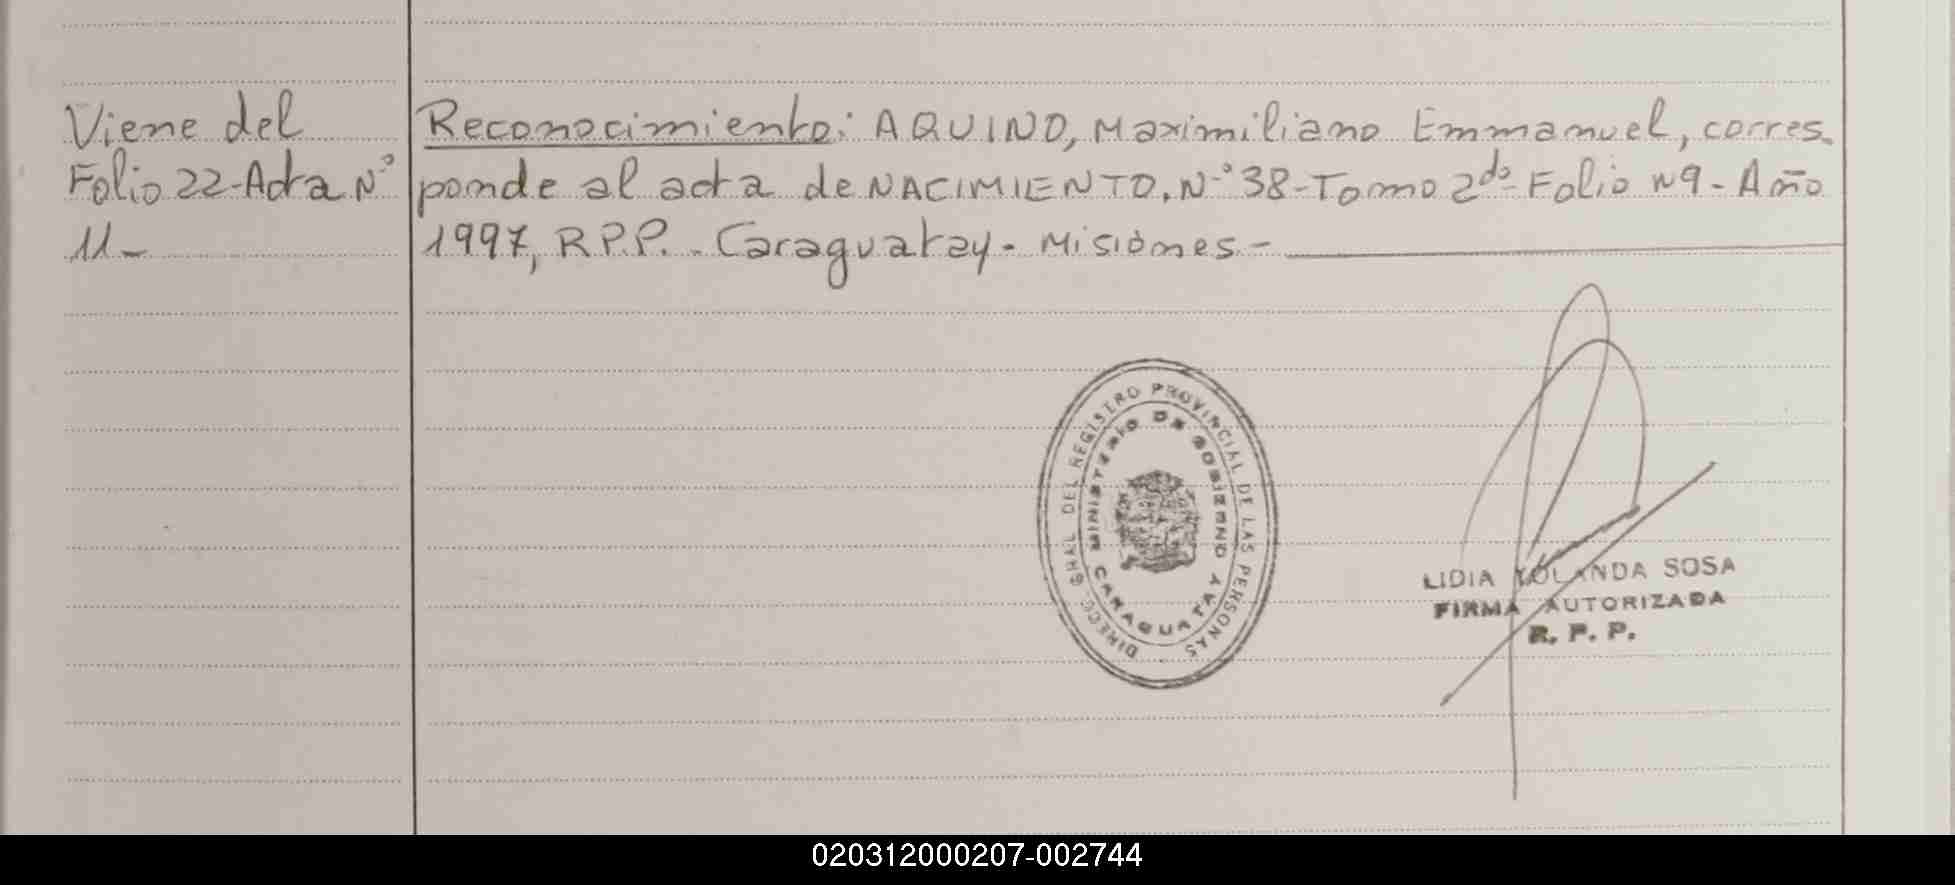 Viene del
Folio 22-Acta N°
11-
Reconocimiento: AQUINO, Maximiliano Emmanuel, corres-
ponde al acta de NACIMIENTO. N° 38-Tomo 2do-Folio N9- Año
1997, R.P.P. - Caraguatay - Misiones -
DIRECC. GRAL. DEL REGISTRO PROVINCIAL DE LAS PERSONAS
MINISTERIO DE GOBIERNO
CARAGUATAY
LIDIA YOLANDA SOSA
FIRMA AUTORIZADA
R. P. P.
020312000207-002744